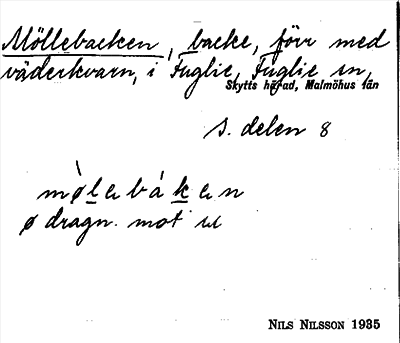 Möllebacken, backe, förr med
väderkvarn, i Fuglie, Fuglie sn,
Skytts härad, Malmöhus län
s. delen 8
mølebáken
ø dragn. mot
NILS NILSSON 1935